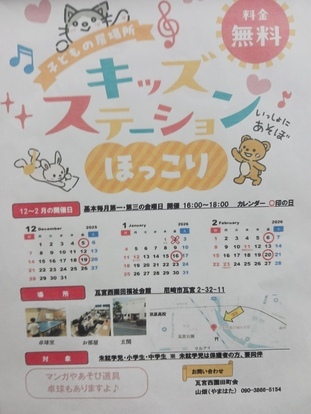 料金
無料
子どもの居場所
キッズ
ステーション
いっしょに
あそぼ
ほっこり
12～2月の開催日
基本毎月第一・第三の金曜日 開催 16:00～18:00 カレンダー 〇印の日
12 December 2025
1 January 2026
2 February 2026
場所
瓦宮西園田福祉会館 尼崎市瓦宮2-32-11
卓球室
お部屋
玄関
対象
未就学児・小学生・中学生 ※ 未就学児は保護者の方、要同伴
マンガやあそび道具
卓球もありますよ♪
お問い合わせ
瓦宮西園田町会
山畑(やまはた)